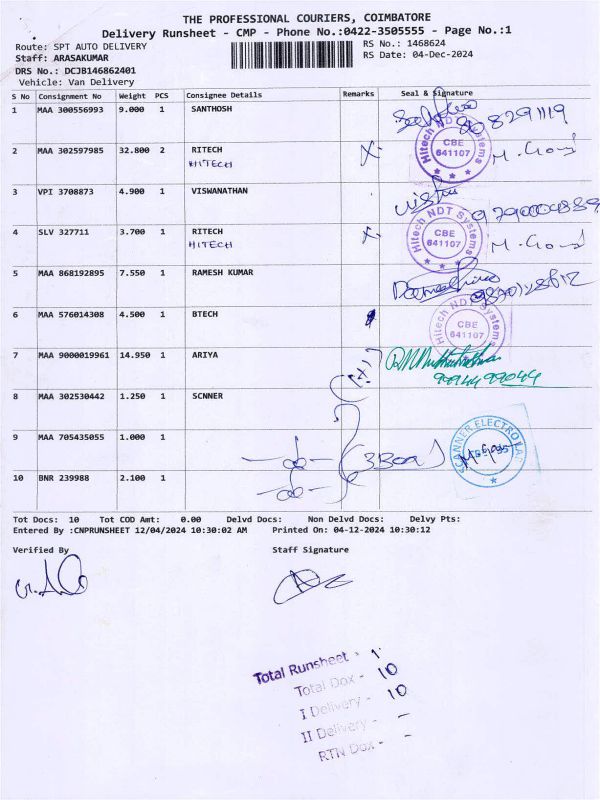 THE PROFESSIONAL COURIERS, COIMBATORE
Delivery Runsheet - CMP - Phone No.:0422-3505555 - Page No.:1
Route: SPT AUTO DELIVERY
RS No.: 1468624
Staff: ARASAKUMAR
RS Date: 04-Dec-2024
DRS No.: DCJB146862401
Vehicle: Van Delivery
S No Consignment No Weight PCS Consignee Details Remarks Seal & Signature
1 MAA 300556993 9.000 1 SANTHOSH
2 MAA 302597985 32.800 2 RITECH
HITECH
Hitech NDT Systems
CBE
641107
3 VPI 3708873 4.900 1 VISWANATHAN
4 SLV 327711 3.700 1 RITECH
HITECH
Hitech NDT Systems
CBE
641107
5 MAA 868192895 7.550 1 RAMESH KUMAR
6 MAA 576014308 4.500 1 BTECH
Hitech NDT Systems
CBE
641107
7 MAA 9000019961 14.950 1 ARIYA
99944 99044
8 MAA 302530442 1.250 1 SCNNER
9 MAA 705435055 1.000 1
SCANNER ELECTRO LAB
10 BNR 239988 2.100 1
Tot Docs: 10 Tot COD Amt: 0.00 Delvd Docs: Non Delvd Docs: Delvy Pts:
Entered By :CNPRUNSHEET 12/04/2024 10:30:02 AM Printed On: 04-12-2024 10:30:12
Verified By Staff Signature
Total Runsheet - 1
Total Dox - 10
I Delivery - 10
II Delivery - -
RTN Dox - -